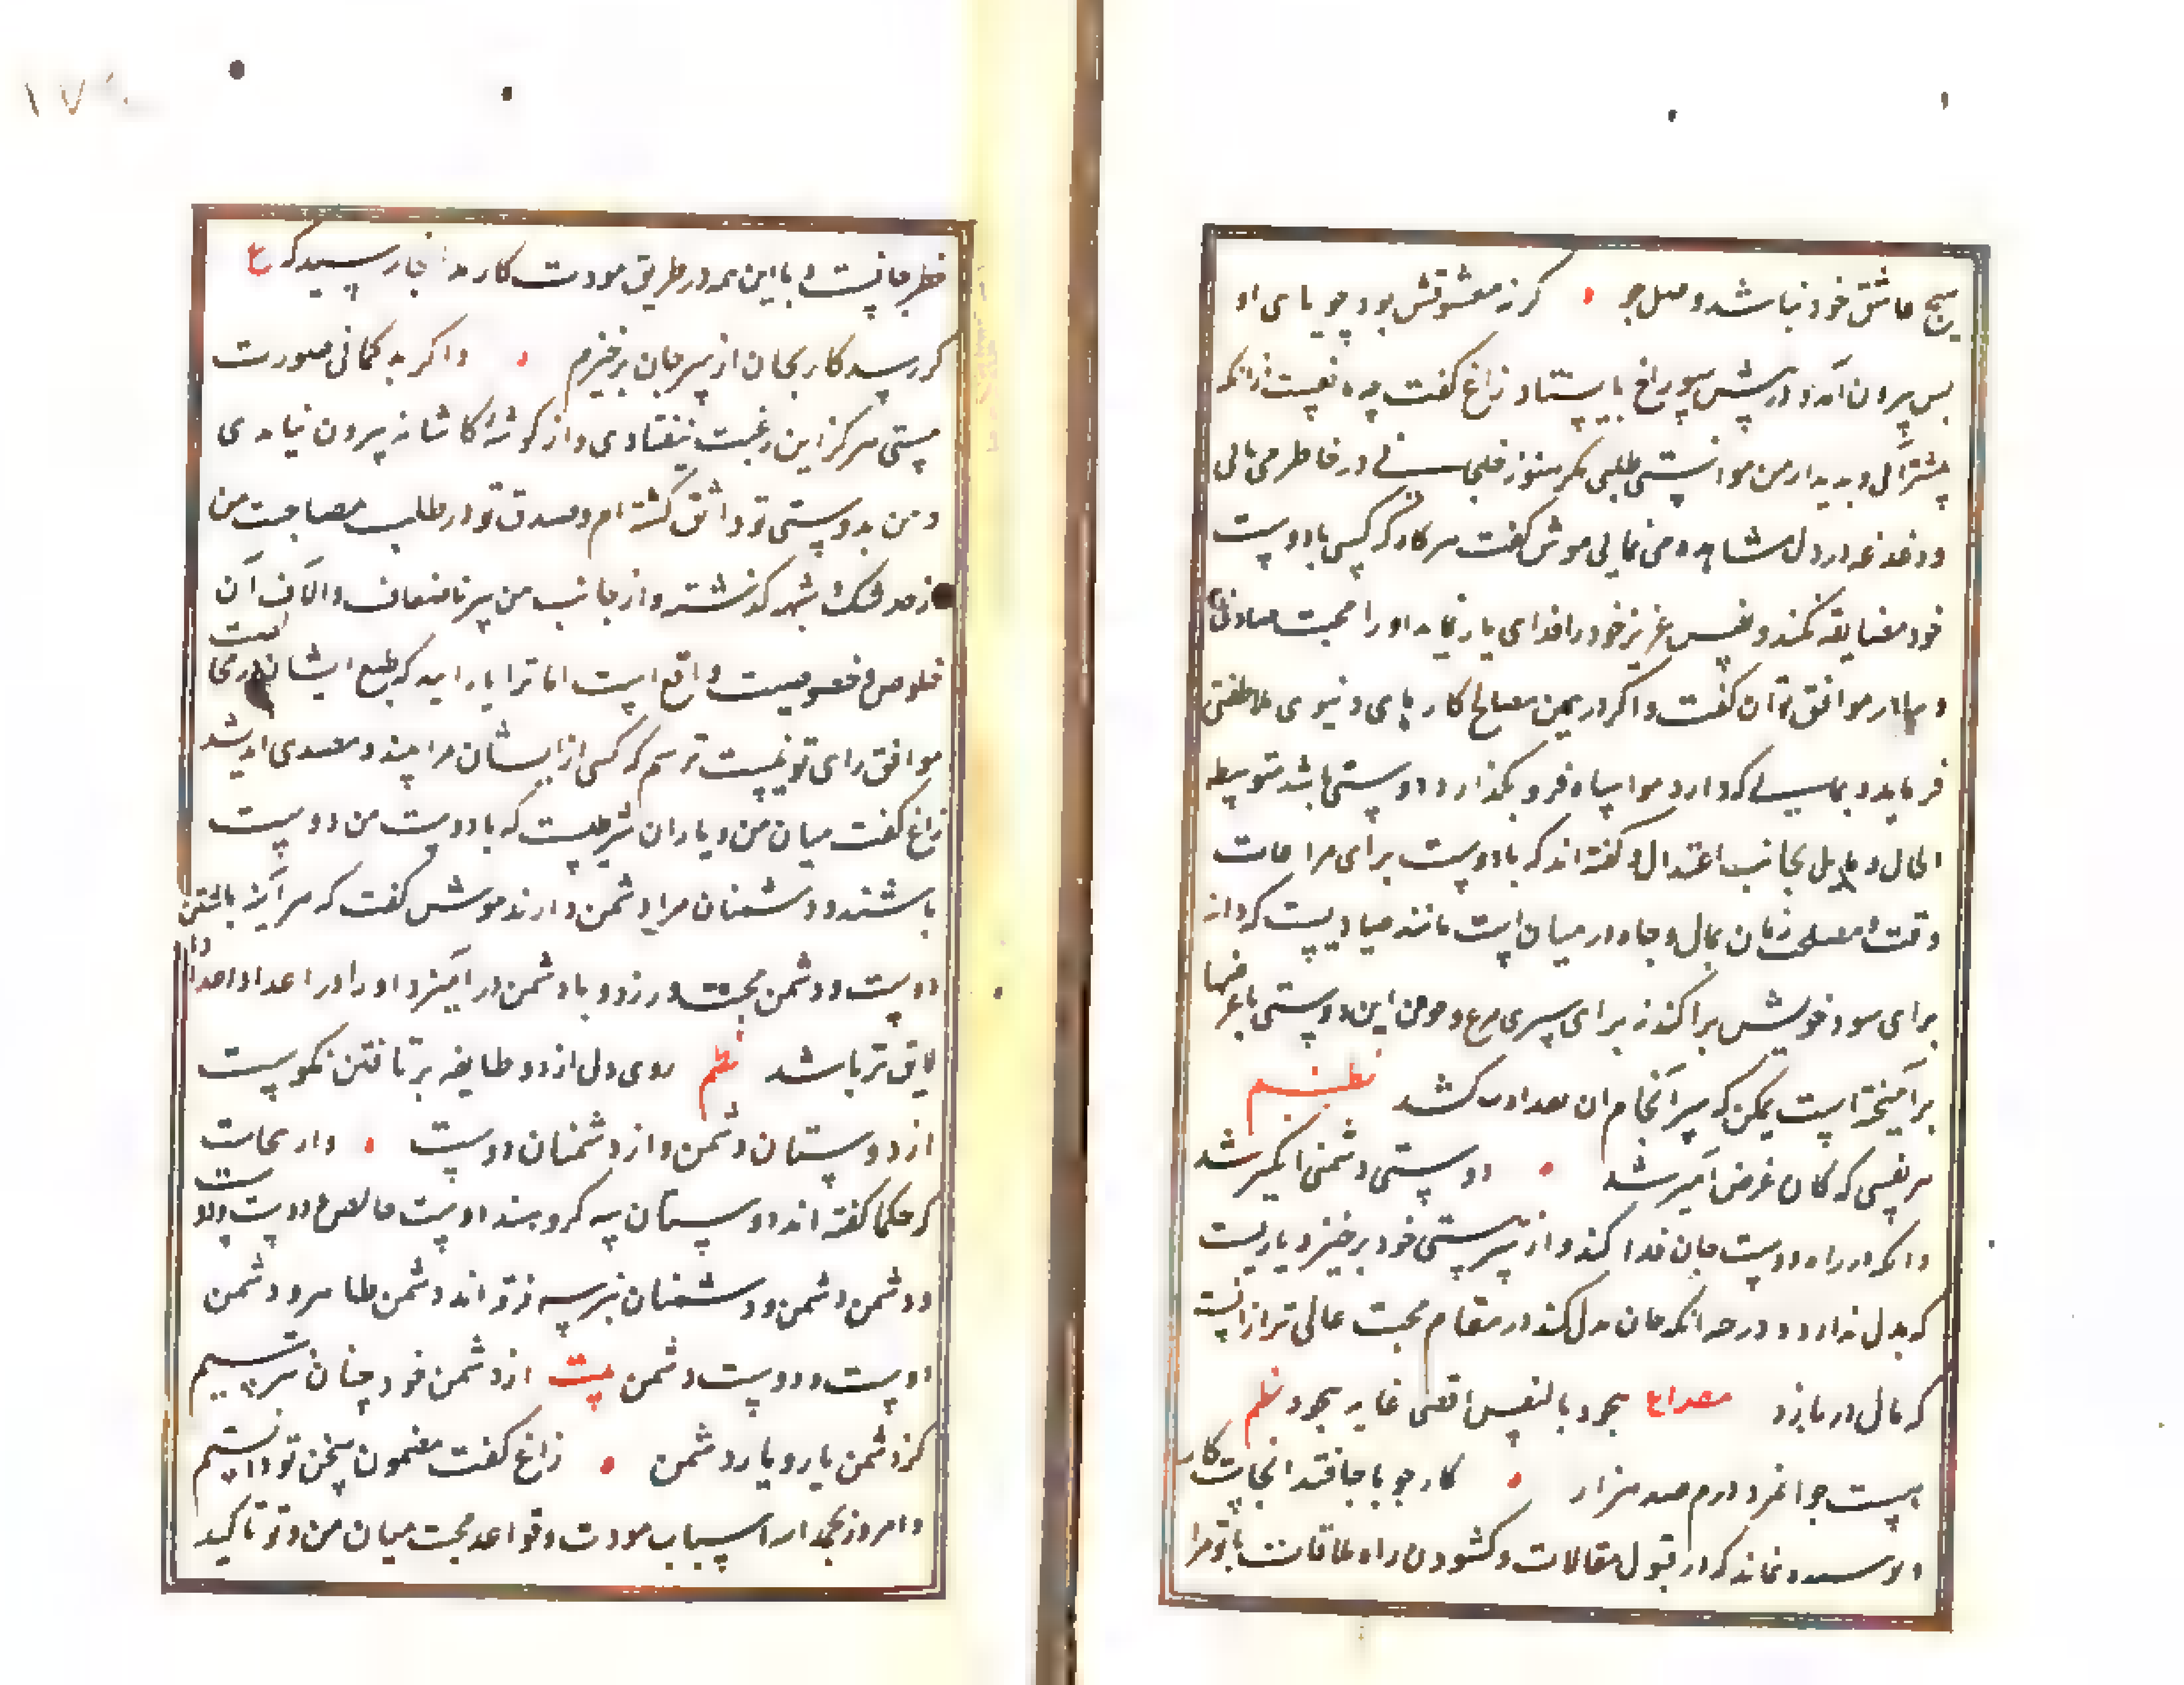 هیچ عاشق خود نباشد وصل جو کر نه معشوقش بود جویای او
پس بیرون آمد و در پیش سوراخ بایستاد زاغ کفت چه مانعیست زانکه
پیشتر آئی و بدیدار من موانست طلبی مکر هنوز خلجانی در خاطر می یابی
و دغدغه در دل مشاهده می نمایی موش کفت هرکاه که کسی با دوست
خود مضایقه نکند و نفس عزیز خود را فدای یار نماید او را محب صادق
و یار موافق توان کفت و اکر در همین مصالح کارهای دنیوی ملاطفتی
فرماید و بمالی که دارد مواساه فرو نکذارد دوستی باشد متوسط
الحال و مایل بجانب اعتدال و کفته اند که با دوست برای مراعات
وقت و مصلحت زمان بمال و جاه در میان است مانند صیادیست که دانه
برای سود خویش پراکند نه برای سیری مرغ و چون این دوستی با غرضها
برآمیخته است یمکن که سرانجام آن بعداوت کشد نظم
هر نفسی که کان غرض آمیز شد دوستی دشمنی انکیز شد
وانکه در راه دوست جان فدا کند و از سر هستی خود برخیزد یاریست
که بدل ندارد و درجه آنکه جان بذل کند در مقام محبت عالی تر از آنست
که مال در بازد مصراع یجود بالنفس اقصی غایه یجود نظم
هست جوانمرد درم صد هزار کار چو با جان فتد آنجاست کار
و پوسیده نماند که در قبول مقالات و کشودن راه ملاقات با تو مرا
خطر جانیست و با این همه در طریق مودت کار بدانجا رسید که ع
کر رسد کار بجان از سر جان برخیزم و اکر بد کمانی صورت
بستی هرکز این رغبت نیفتادی و از کوشه کاشانه بیرون نیامدی
و من بدوستی تو واثق کشته ام و صدق تو در طلب مصاحبت من
از حد شک و شبهه کذشته و از جانب من نیز باضعاف و الآف آن
خلوص و خصوصیت واقع است اما ترا یارانند که طبع ایشان در مخالصت
موافق رای تو نیست ترسم که کسی از ایشان مرا بیند و قصدی اندیشد
زاغ کفت میان من و یاران شرطیست که با دوست من دوست
باشند و دشمنان مرا دشمن دارند موش کفت که هر آینه با دشمن
دوست و دوست دشمن محبت ورزد و با دشمن در آمیزد او را در اعداد اعدا
لایق تر باشد نظم روی دل از دو طایفه برتافتن نکوست
از دوستان دشمن و از دشمنان دوست و از ینجاست
که حکما کفته اند دوستان سه کروهند دوست خالص و دوست دوست
و دشمن دشمن و دشمنان نیز سه فرقه اند دشمن ظاهر و دشمن
دوست و دوست دشمن بیت از دشمن خود چنان نترسیم
کز دشمن یار و یار دشمن زاغ کفت مضمون سخن تو دانستم
و امروز بحمد الله اسباب مودت و قواعد محبت میان من و تو تاکید